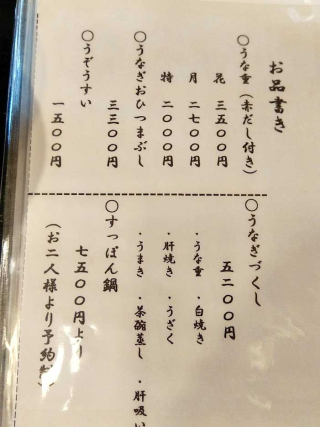 お品書き
○うな重(赤だし付き)
花 三五〇〇円
月 二七〇〇円
特 二〇〇〇円
○うなぎおひつまぶし
三三〇〇円
○うぞうすい
一五〇〇円
○うなぎづくし
五二〇〇円
・うな重 ・白焼き
・肝焼き ・うざく
・うまき ・茶碗蒸し ・肝吸い
○すっぽん鍋
七五〇〇円より
(お二人様より予約制)